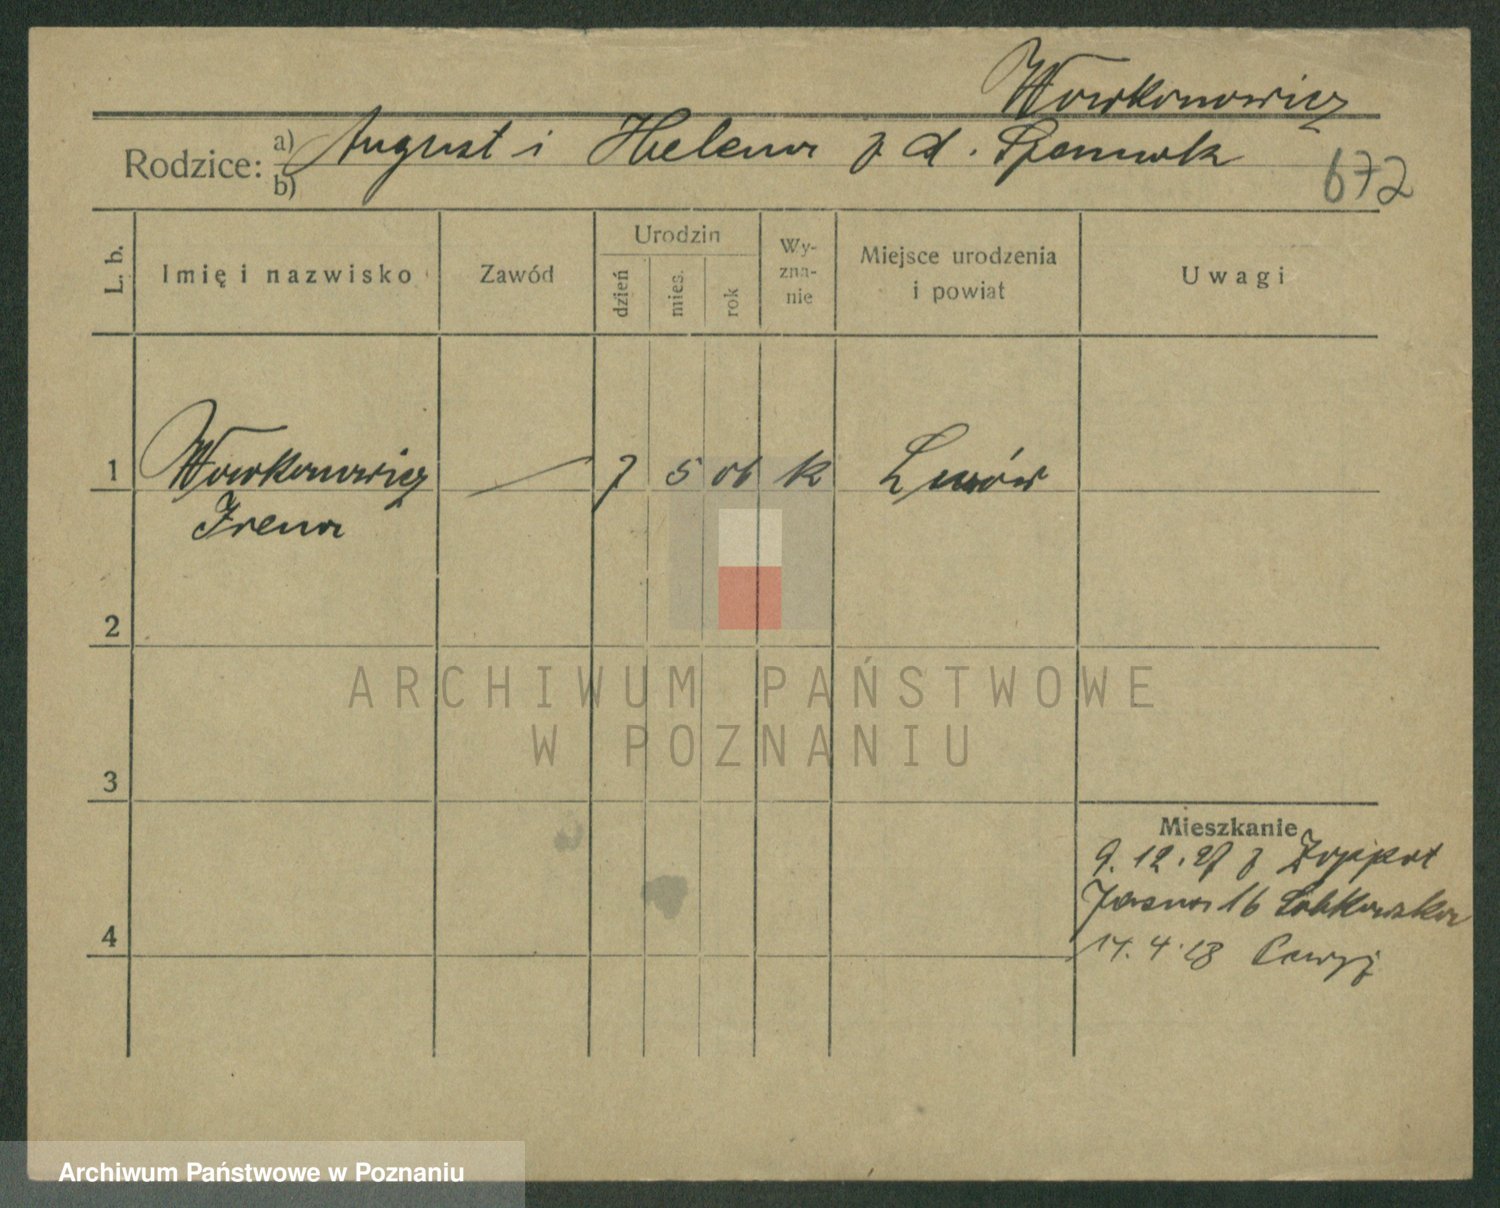 Wowkonowicz
Rodzice: a) August i Helena z d.
b)
672
L. b.
Imię i nazwisko
Zawód
Urodzin
dzień
mies.
rok
Wy-
zna-
nie
Miejsce urodzenia
i powiat
Uwagi
1 Wowkonowicz 7 5 06 k Lwów
Irena
2
ARCHIWUM PAŃSTWOWE
W POZNANIU
3
Mieszkanie
9.12.27 z Zoppot
Jasna 16
4
14.4.28
Archiwum Państwowe w Poznaniu